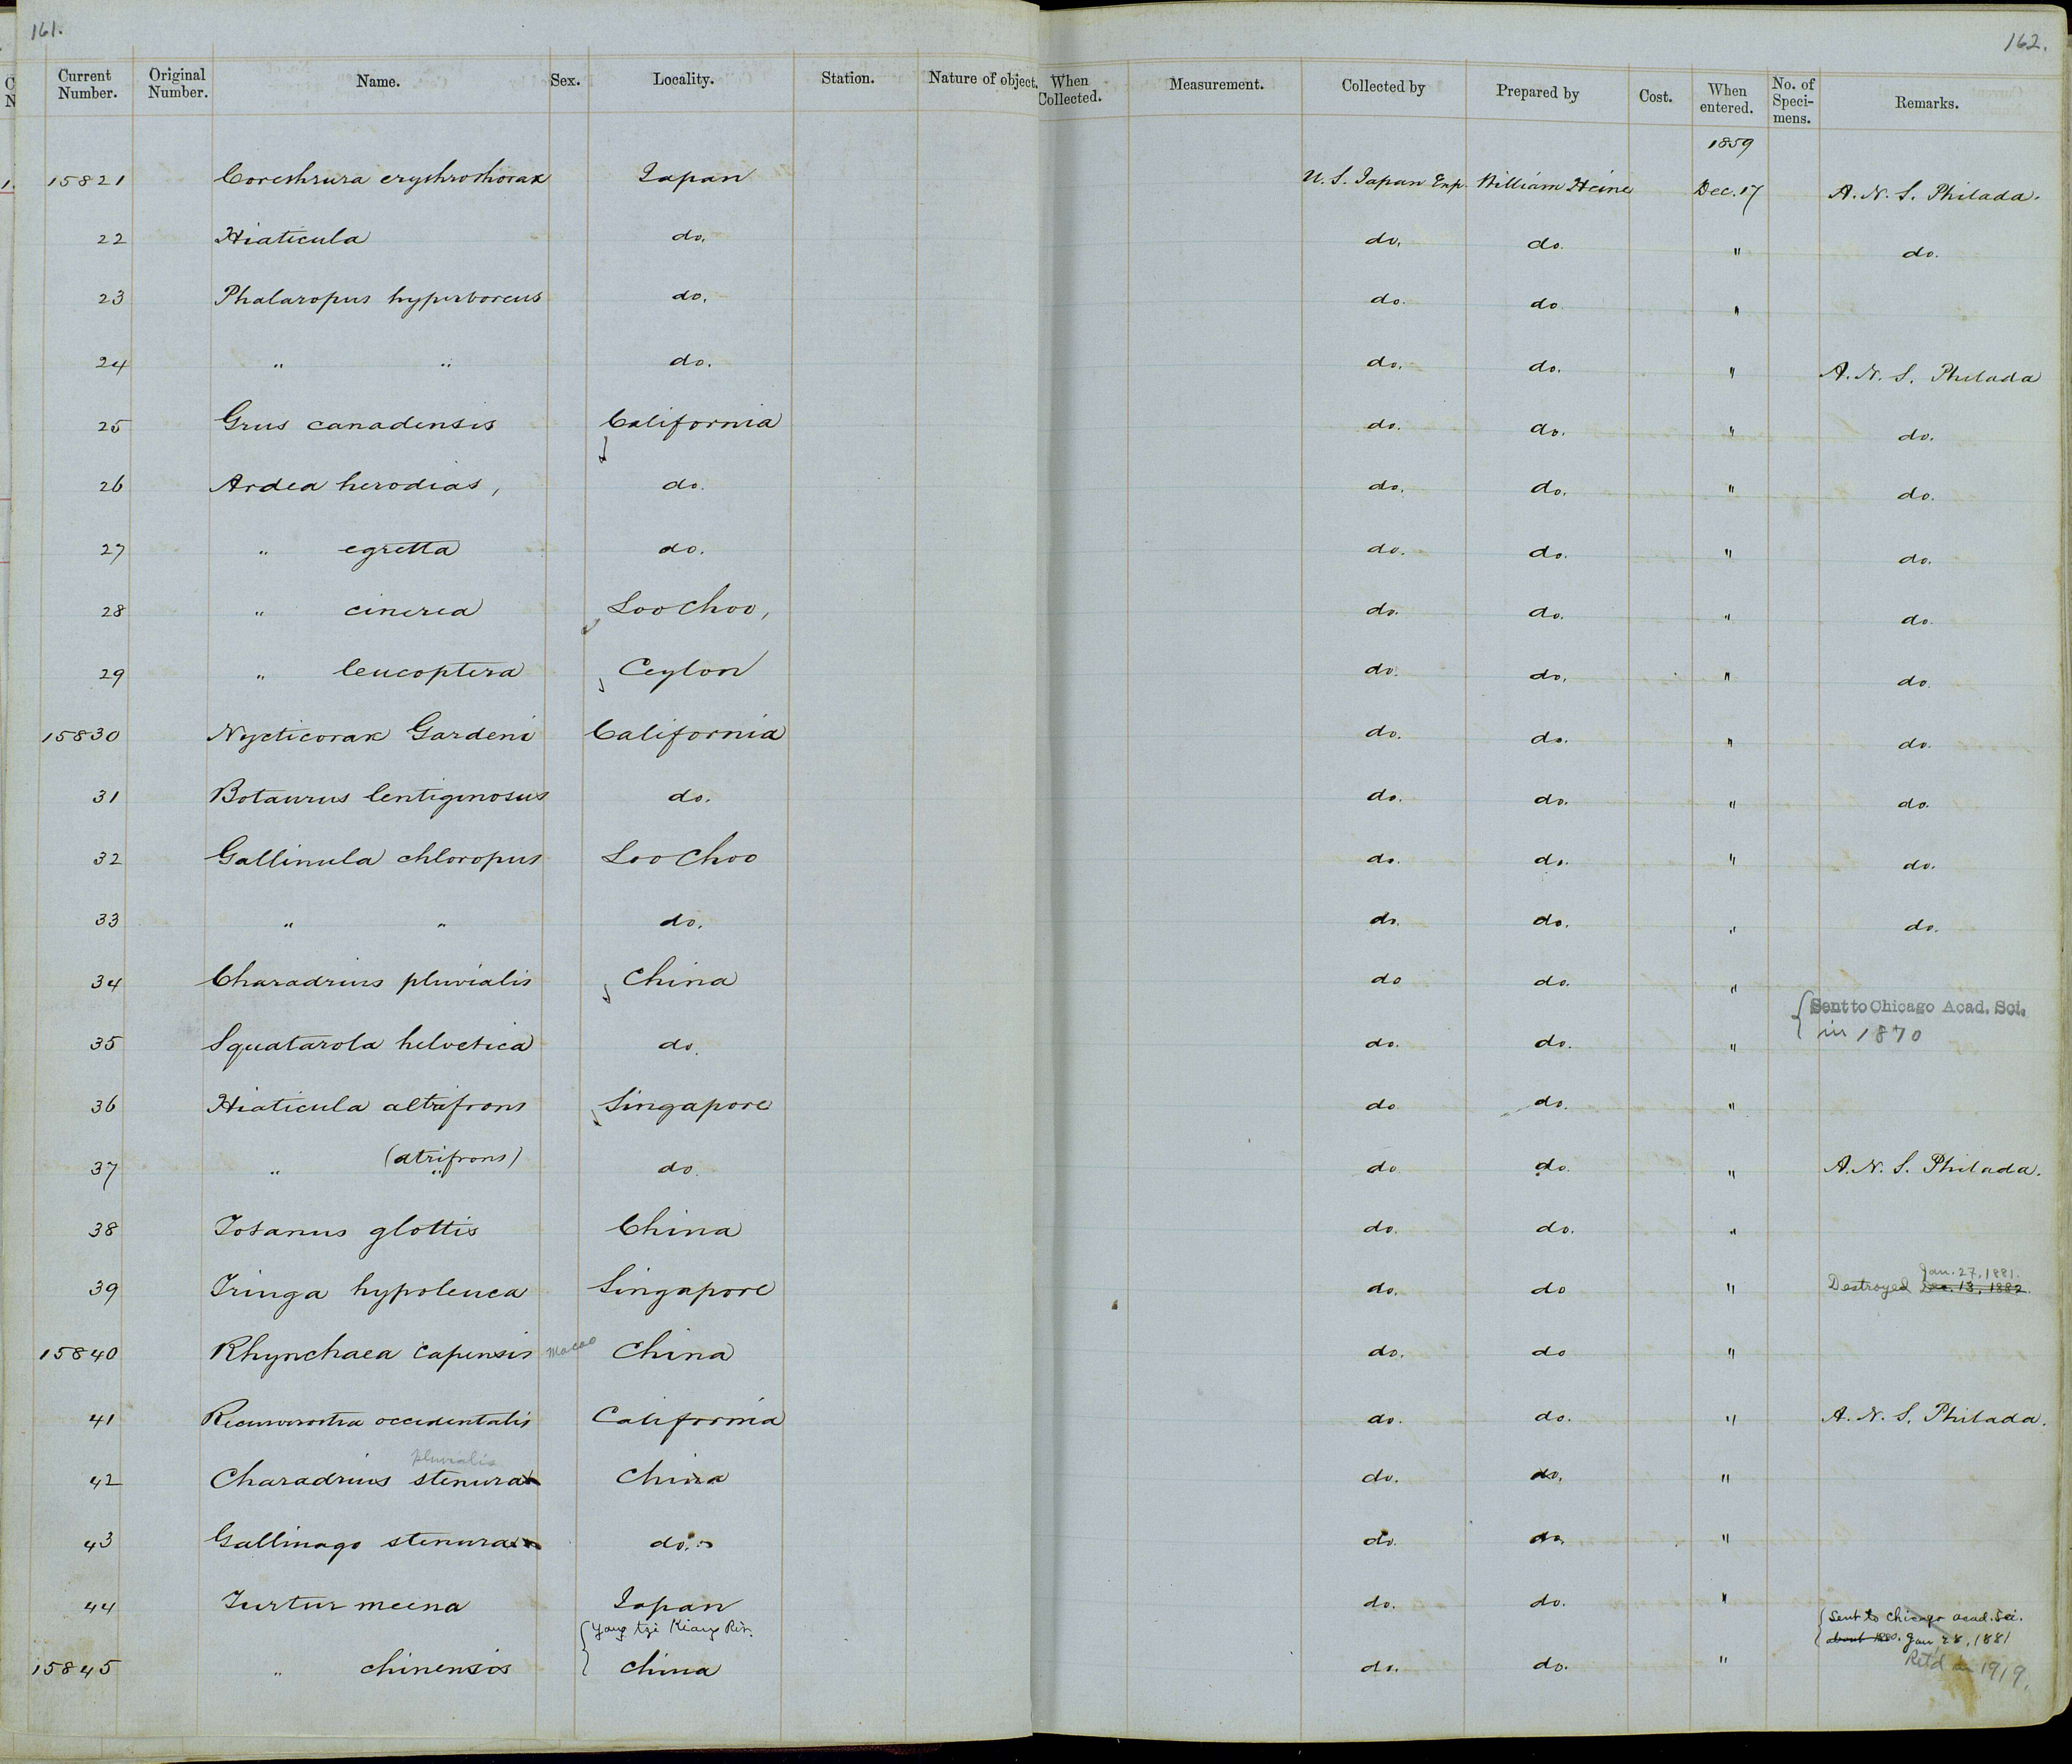 161.
162.
Current Number. Original Number. Name. Sex. Locality. Station. Nature of object. When Collected. Measurement. Collected by Prepared by Cost. When entered. No. of Speci-mens. Remarks.
1859
15821 Corethrura erythrothorax Japan U. S. Japan Exp. William Heine Dec. 17 A. N. S. Philada.
22 Hiaticula do. do. do. " do.
23 Phalaropus hyperboreus do. do. do "
24 " " do. do. do. " A. N. S. Philada
25 Grus canadensis California do. do. " do.
26 Ardea herodias, do. do. do. " do.
27 " egretta do. do. do. " do.
28 " cinerea Loo Choo, do. do. " do.
29 " leucoptera Ceylon do. do. " do
15830 Nycticorax Gardeni California do. do. " do.
31 Botaurus lentiginosus do. do. do. " do.
32 Gallinula chloropus Loo Choo do. do. " do.
33 " " do. do. do. " do.
34 Charadrius pluvialis China do do. "
{ Sent to Chicago Acad. Sci. in 1870
35 Squatarola helvetica do. do. do. "
36 Hiaticula altrifrons Singapore do do. "
(atrifrons)
37 " " do. do do. " A. N. S. Philada.
38 Totanus glottis China do. do. "
Jan. 27, 1881.
39 Tringa hypoleuca Singapore do. do " Destroyed Dec. 13, 1882.
15840 Rhynchaea capensis Macao China do. do "
41 Recurvirostra occidentalis California do. do. " A. N. S. Philada.
pluvialis
42 Charadrius stenura China do. do. "
43 Gallinago stenura do. do. do. "
44 Turtur meena Japan do. do. "
{ Yang tzi Kiang Riv. { Sent to Chicago Acad. Sci.
about 1880. Jan 28, 1881
15845 " chinensis China do. do. " Ret'd in 1919.